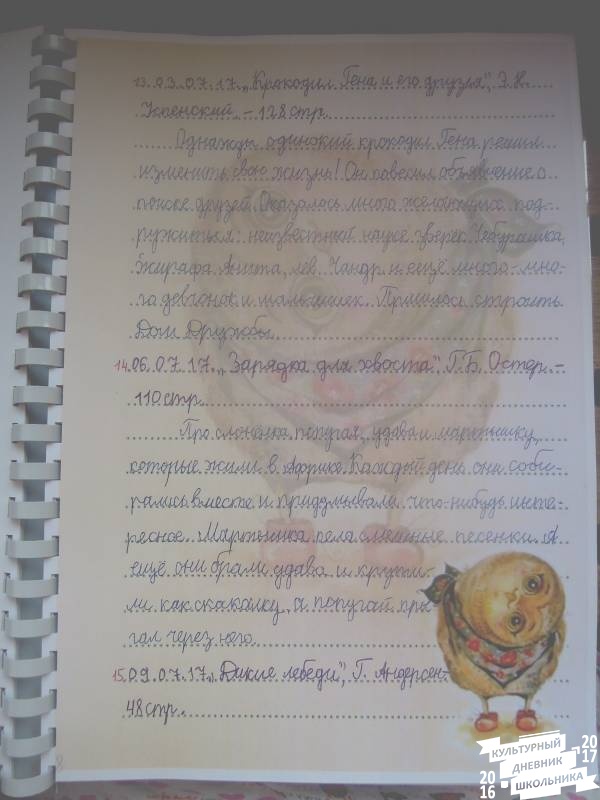 13. 03.07.17. „Крокодил Гена и его друзья", Э.Н.
Успенский. – 128 стр.
Однажды одинокий крокодил Гена решил
изменить свою жизнь! Он повесил объявление о
поиске друзей. Оказалось много желающих под-
ружиться: неизвестный науке зверёк Чебурашка,
жирафа Анюта, лев Чандр и ещё много-мно-
го девчонок и мальчишек. Пришлось строить
Дом Дружбы.
14. 06.07.17. „Зарядка для хвоста", Г.Б. Остер. –
110 стр.
Про слонёнка, попугая, удава и мартышку,
которые жили в Африке. Каждый день они соби-
рались вместе и придумывали что-нибудь инте-
ресное. Мартышка пела смешные песенки. А
ещё они брали удава и крутили
как скакалку, а попугай пры-
гал через него.
15. 09.07.17. „Дикие лебеди", Г. Андерсен-
48 стр.
8
КУЛЬТУРНЫЙ
ДНЕВНИК
ШКОЛЬНИКА
2016
2017